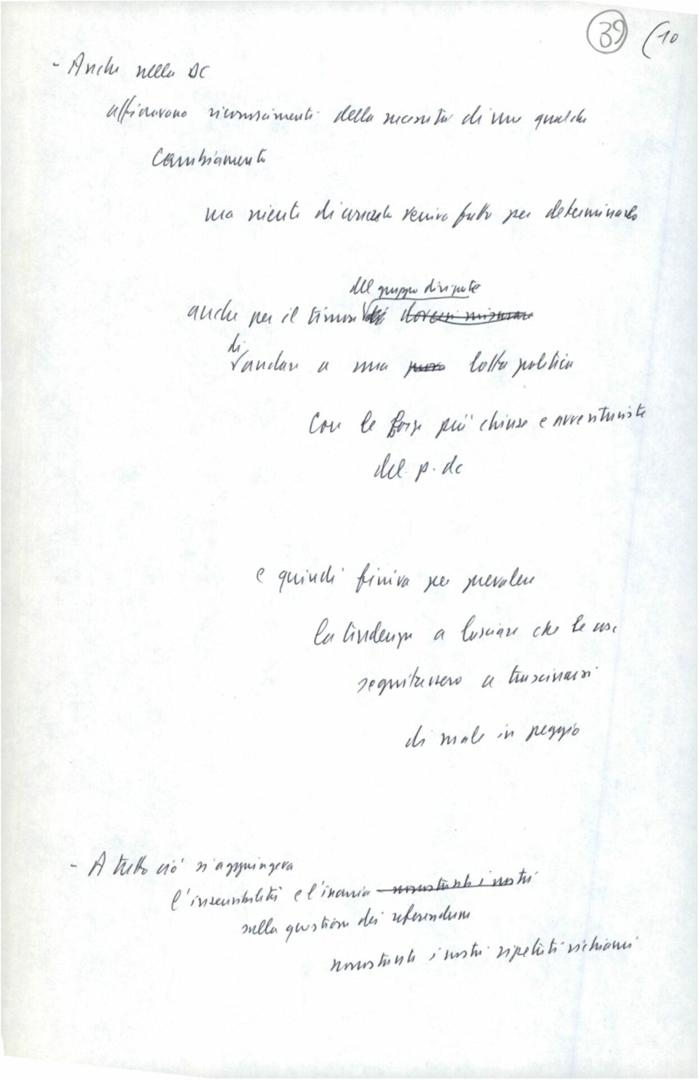 39 (10
- Anche nella DC
affioravano riconoscimenti della necessità di un qualche
cambiamento
ma niente di concreto veniva fatto per determinarlo
del gruppo dirigente
anche per il timore di dover misurarsi
di
andare a una lotta politica
con le forze più chiuse e avventuriste
del p. dc
e quindi finiva per prevalere
la tendenza a lasciare che le cose
seguitassero a trascinarsi
di male in peggio
- A tutto ciò s'aggiungeva
l'insensibilità e l'inerzia nonostante i nostri
sulla questione dei referendum
nonostante i nostri ripetuti richiami